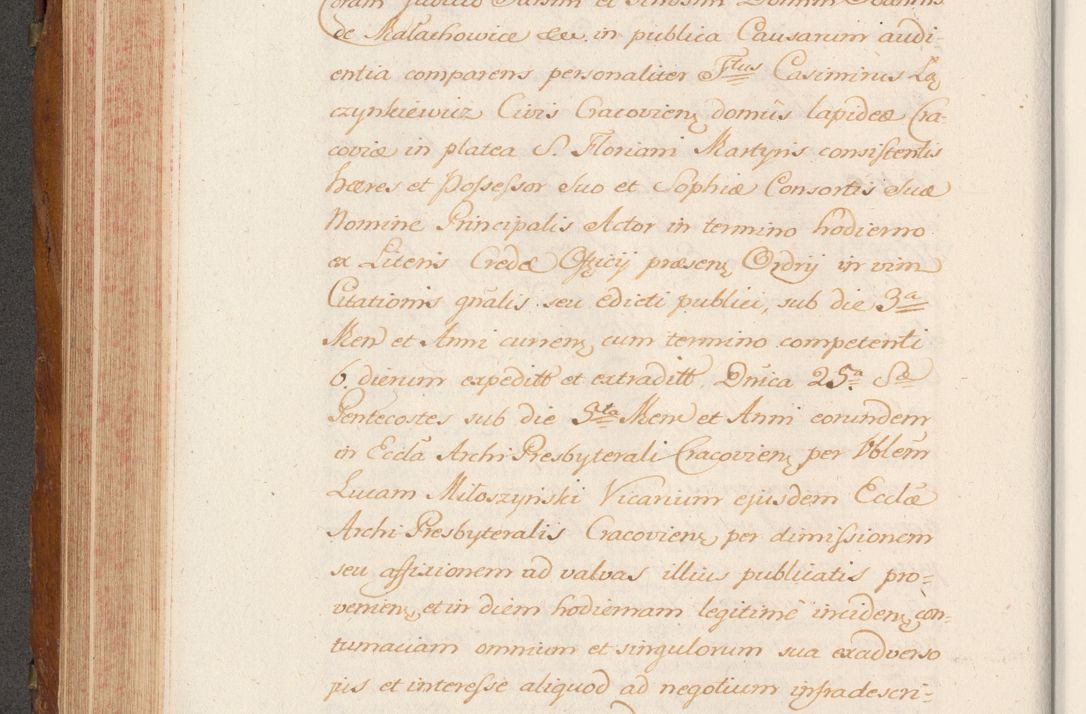 de Małachowice &c. in publica Causarum audi-
entia comparens personaliter Ftus Casimirus Łą
czynkiewicz Civis Cracovieñ domûs lapideæ Cra-
coviæ in platea S. Floriani Martyris consistentis
hæres et Possessor Suo et Sophiæ Consortis Suæ
Nomine Principalis Actor in termino hodierno
ex Literis Credæ Officij præsenꝫ Ordrij in vim
Citationis gñalis seu edicti publici, sub die 3ª
Men̄ et Anni currenꝫ cum termino competenti
6. dierum expeditt et extraditt, Dnica 25ª S̄æ
Pentecostes sub die 5ta Men̄ et Anni eorundem
in Eccla Archi Presbyterali Cracovienꝫ per Vblem
Lucam Miłoszyński Vicarium ejusdem Ecclæ
Archi Presbyteralis Cracovienꝫ per dimissionem
seu affixionem ad valvas illius publicatis pro=
venienꝫ, et in diem hodiernam legitimè incidenꝫ, con-
tumaciam omnium et singulorum sua exadverso
jus et interesse aliquod ad negotium infradescri=